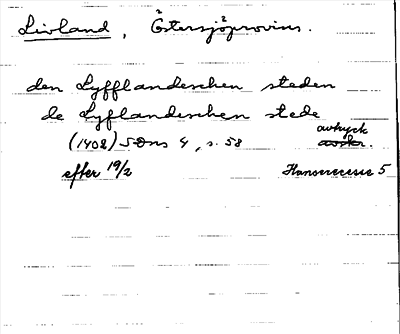 Livland, Östersjöprovins.
den Lyfflandeschen steden
de Lyflandeschen stede
avtryck
(1408) SDns 4, s. 58
efter 19/2 Hanserecesse 5